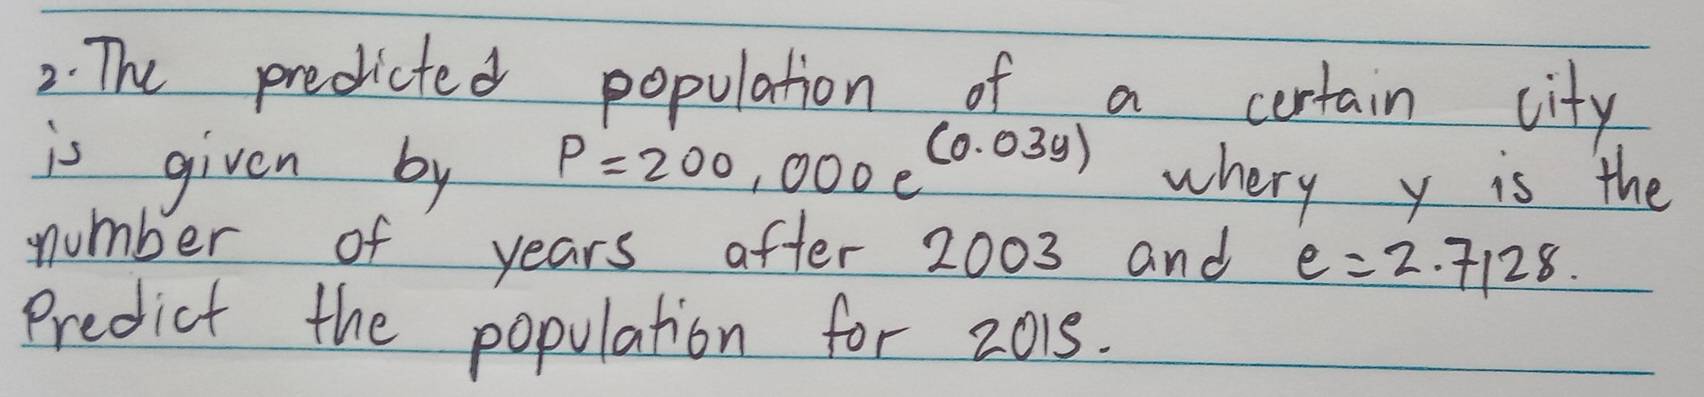 2. The predicted population of a certain city
is given by P=200,000e^(0.03y) whery y is the
number of years after 2003 and e=2.7128.
Predict the population for 2015.